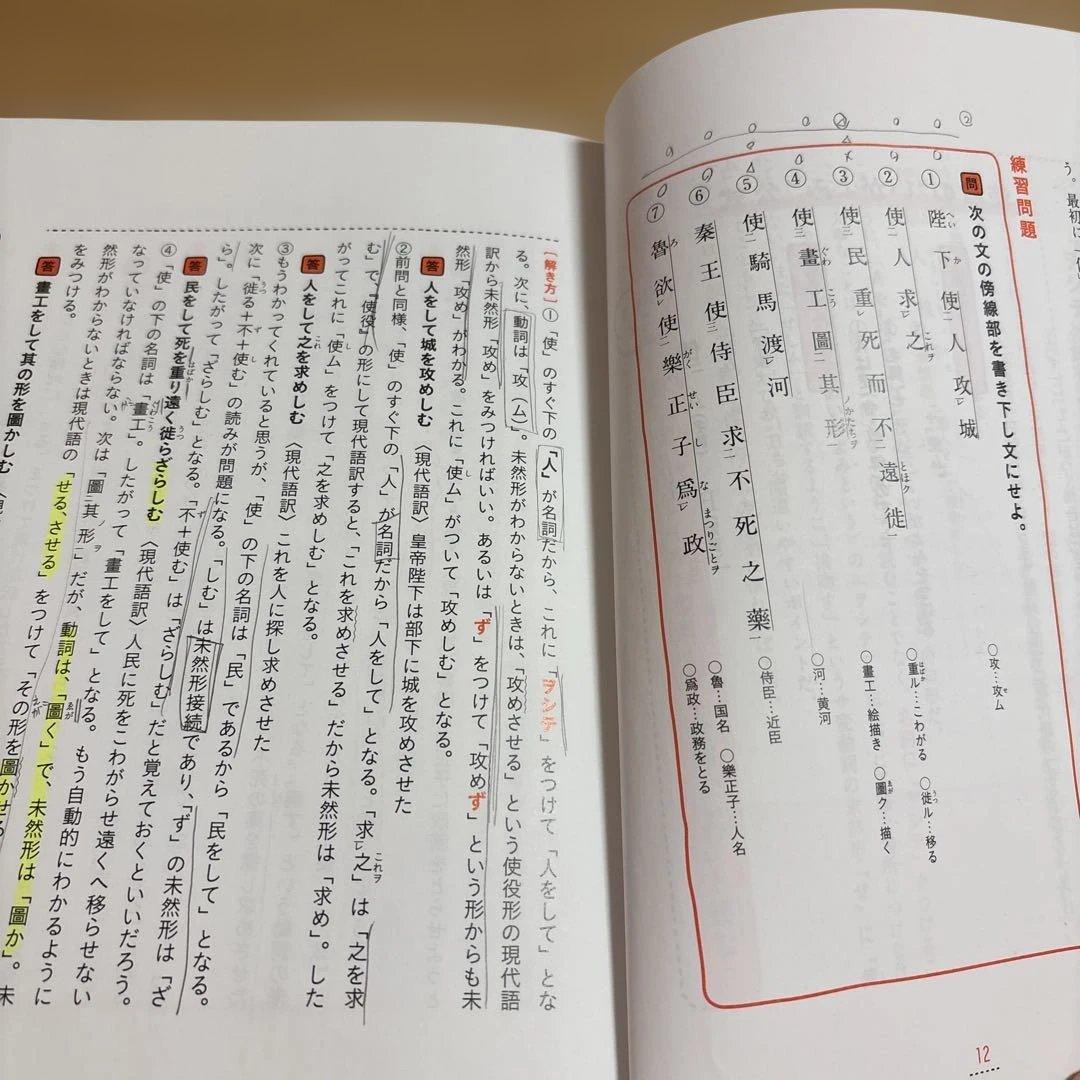 う。最初に「使
練習問題
問 次の文の傍線部を書き下し文にせよ。
① 陛下使人攻レ城
② 使人求レ之
③ 使民重レ死而不二遠徙一
④ 使二畫工圖二其形一
⑤ 使二騎馬渡レ河
⑥ 秦王使三侍臣求不死之藥一
⑦ 魯欲レ使二樂正子爲レ政
○攻…攻ム
○重ル…こわがる ○徙ル…移る
○畫工…絵描き ○圖ク…描く
○河…黄河
○侍臣…近臣
○魯…国名 ○樂正子…人名
○爲政…政務をとる
12
〔解き方〕①「使」のすぐ下の「人」が名詞だから、これに「ヲシテ」をつけて「人をして」とな
る。次に、動詞は「攻(ム)」。未然形がわからないときは、「攻めさせる」という使役形の現代語
訳から未然形「攻め」をみつければいい。あるいは「ず」をつけて「攻めず」という形からも未
然形「攻め」がわかる。これに「使ム」がついて「攻めしむ」となる。
答 人をして城を攻めしむ〈現代語訳〉皇帝陛下は部下に城を攻めさせた
②前問と同様、「使」のすぐ下の「人」が名詞だから「人をして」となる。「求レ之」は「之を求
む」で、「使役」の形にして現代語訳すると、「これを求めさせる」だから未然形は「求め」。した
がってこれに「使ム」をつけて「之を求めしむ」となる。
答 人をして之を求めしむ〈現代語訳〉これを人に探し求めさせた
③もうわかってくれていると思うが、「使」の下の名詞は「民」であるから「民をして」となる。
次に「徙る+不+使む」の読みが問題になる。「しむ」は未然形接続であり、「ず」の未然形は「ざ
ら」。したがって「ざらしむ」となる。「不+使む」は「ざらしむ」だと覚えておくといいだろう。
答 民をして死を重り遠く徙らざらしむ〈現代語訳〉人民に死をこわがらせ遠くへ移らせない
④「使」の下の名詞は「畫工」。したがって「畫工をして」となる。もう自動的にわかるように
なっていなければならない。次は「圖二其形一」だが、動詞は、「圖く」で、未然形は「圖か」。未
然形がわからないときは現代語の「せる、させる」をつけて「その形を圖かせる
をみつける。
答 畫工をして其の形を圖かしむ